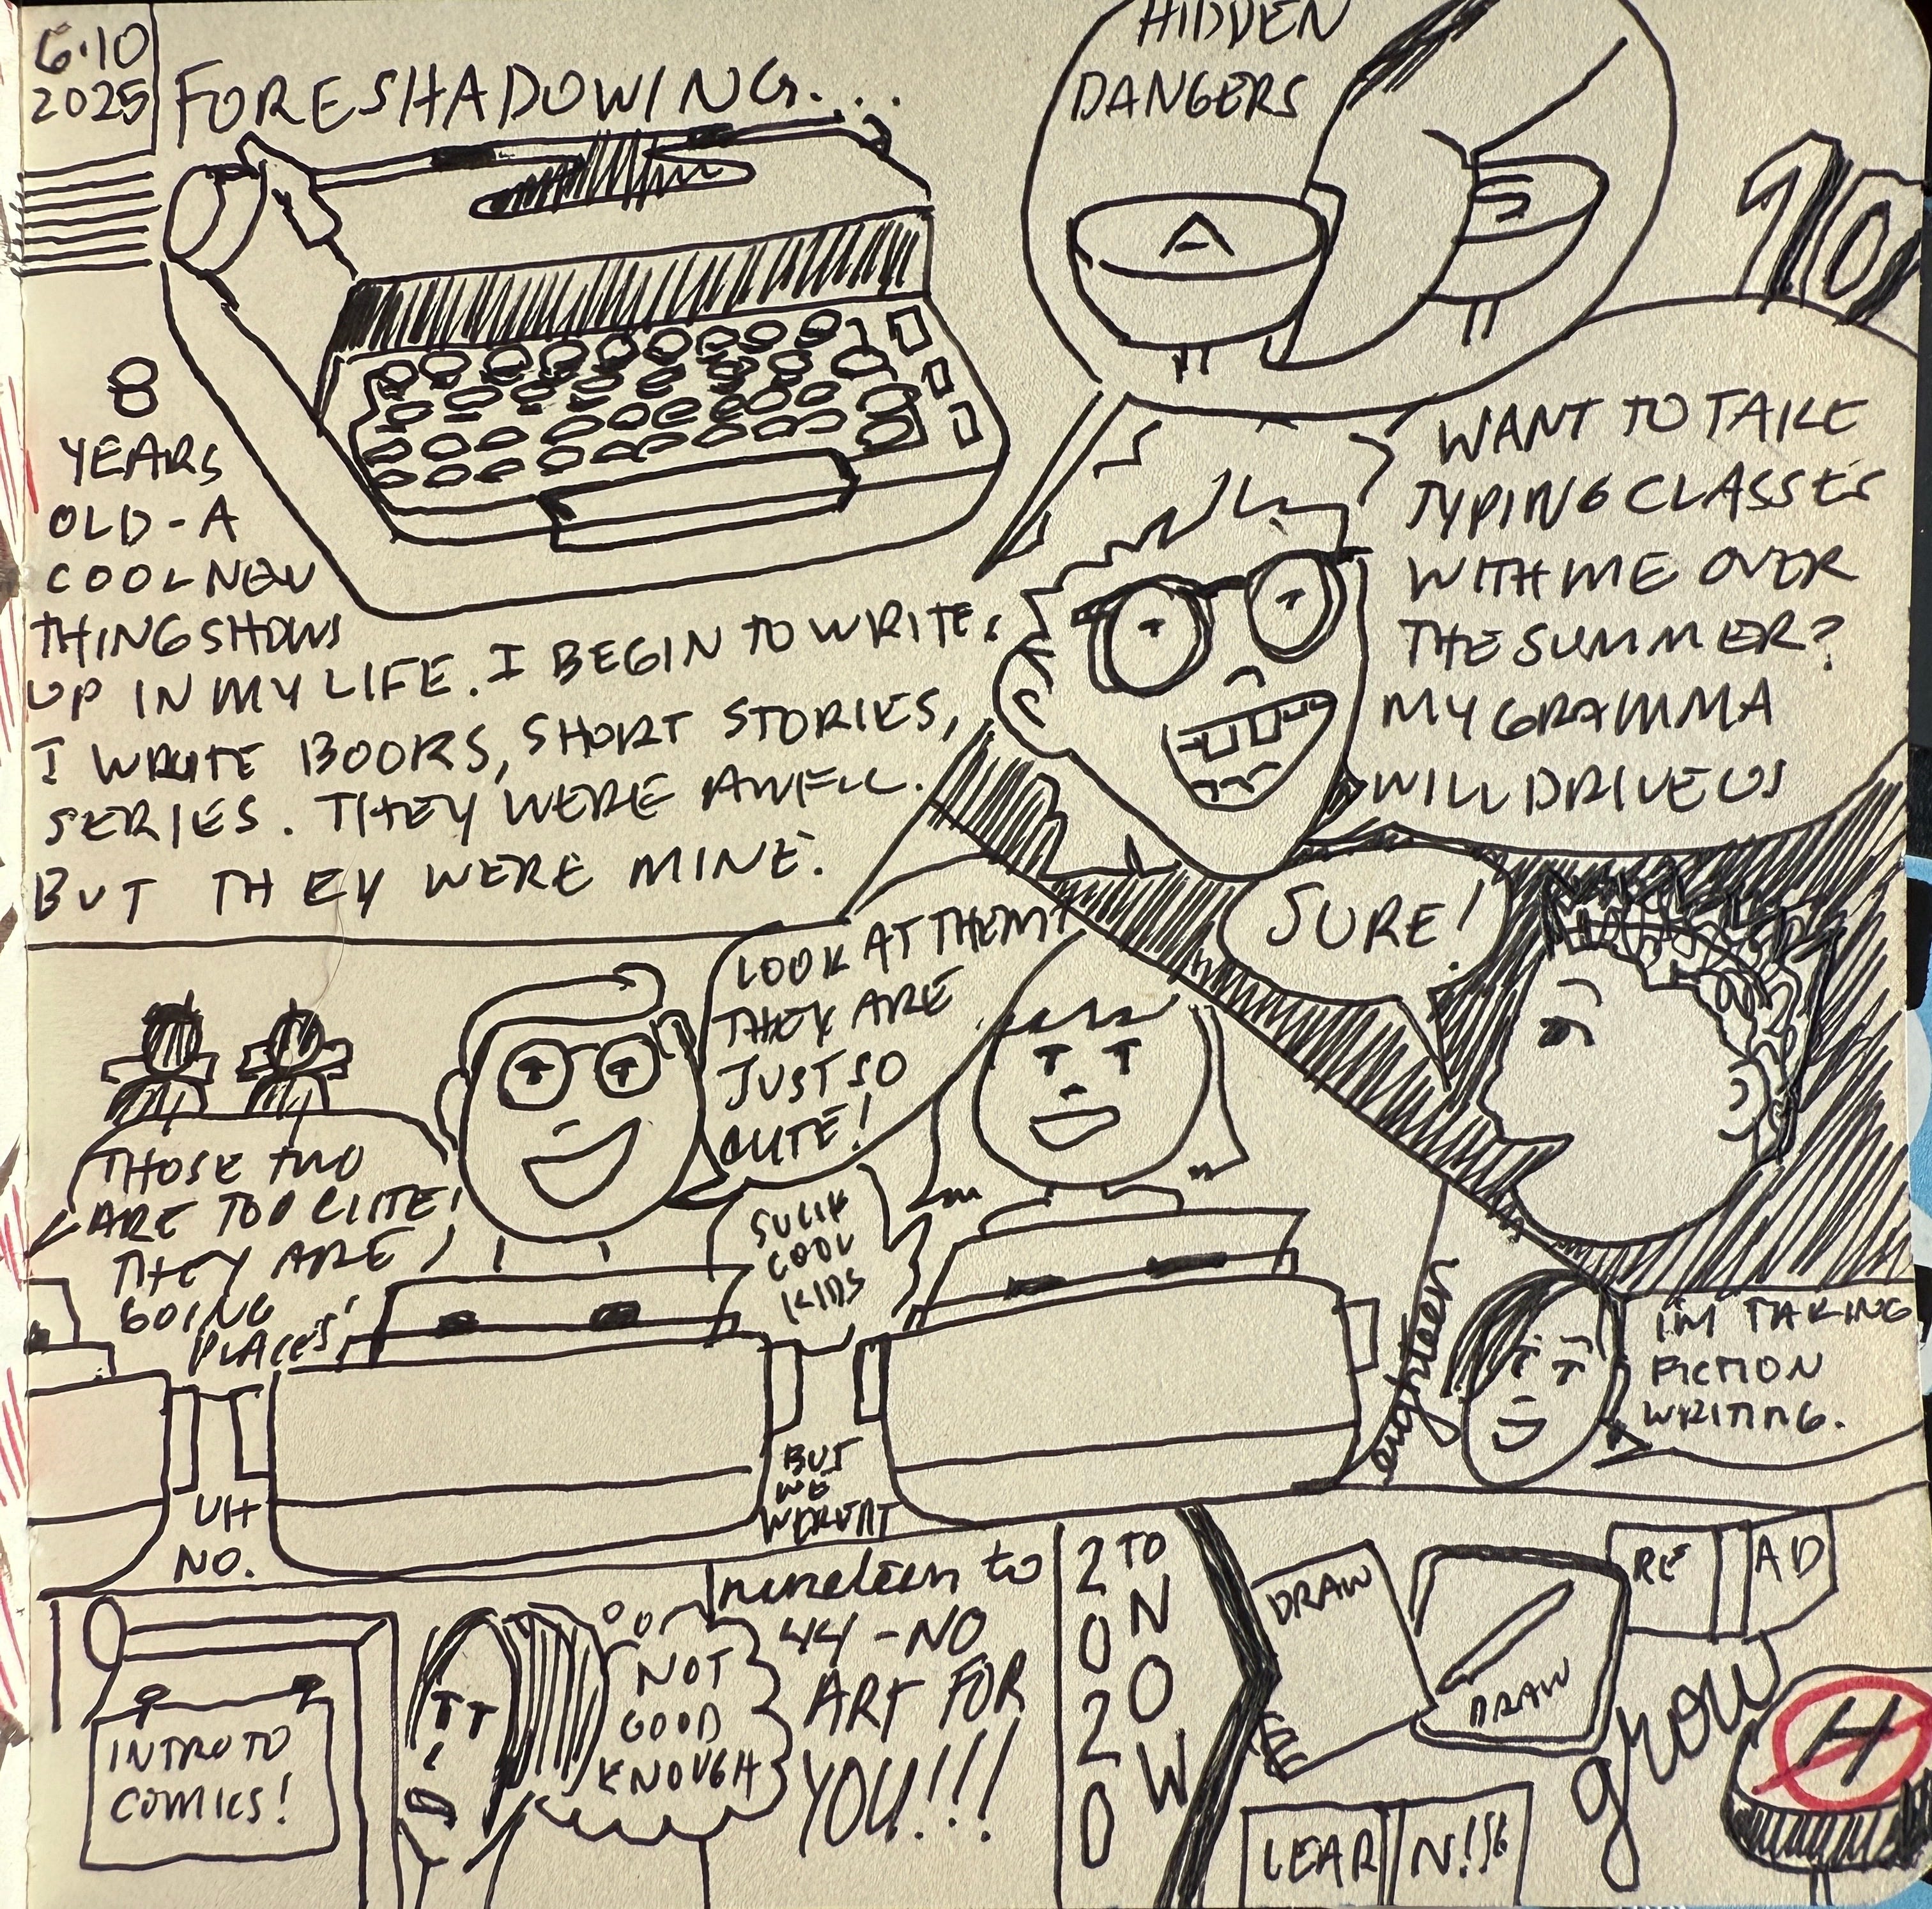 6·10
2025
FORESHADOWING...
HIDDEN
DANGERS
A
S
10
8
YEARS
OLD - A
COOL NEW
THING SHOWS
UP IN MY LIFE. I BEGIN TO WRITE.
I WROTE BOOKS, SHORT STORIES,
SERIES. THEY WERE AWFUL.
BUT THEY WERE MINE.
WANT TO TAKE
TYPING CLASSES
WITH ME OVER
THE SUMMER?
MY GRAMMA
WILL DRIVE US
SURE!
LOOK AT THEM!
THEY ARE
JUST SO
CUTE!
THOSE TWO
ARE TOO CUTE!
THEY ARE
GOING
PLACES!
SUCH
COOL
KIDS
UH
NO.
BUT
WE
WERENT
eighteen
I'M TAKING
FICTION
WRITING.
INTRO TO
COMICS!
NOT
GOOD
ENOUGH
nineteen to
44 - NO
ART FOR
YOU!!!
2020
TO
NOW
DRAW
DRAW
RE AD
LEAR N!
grow
H